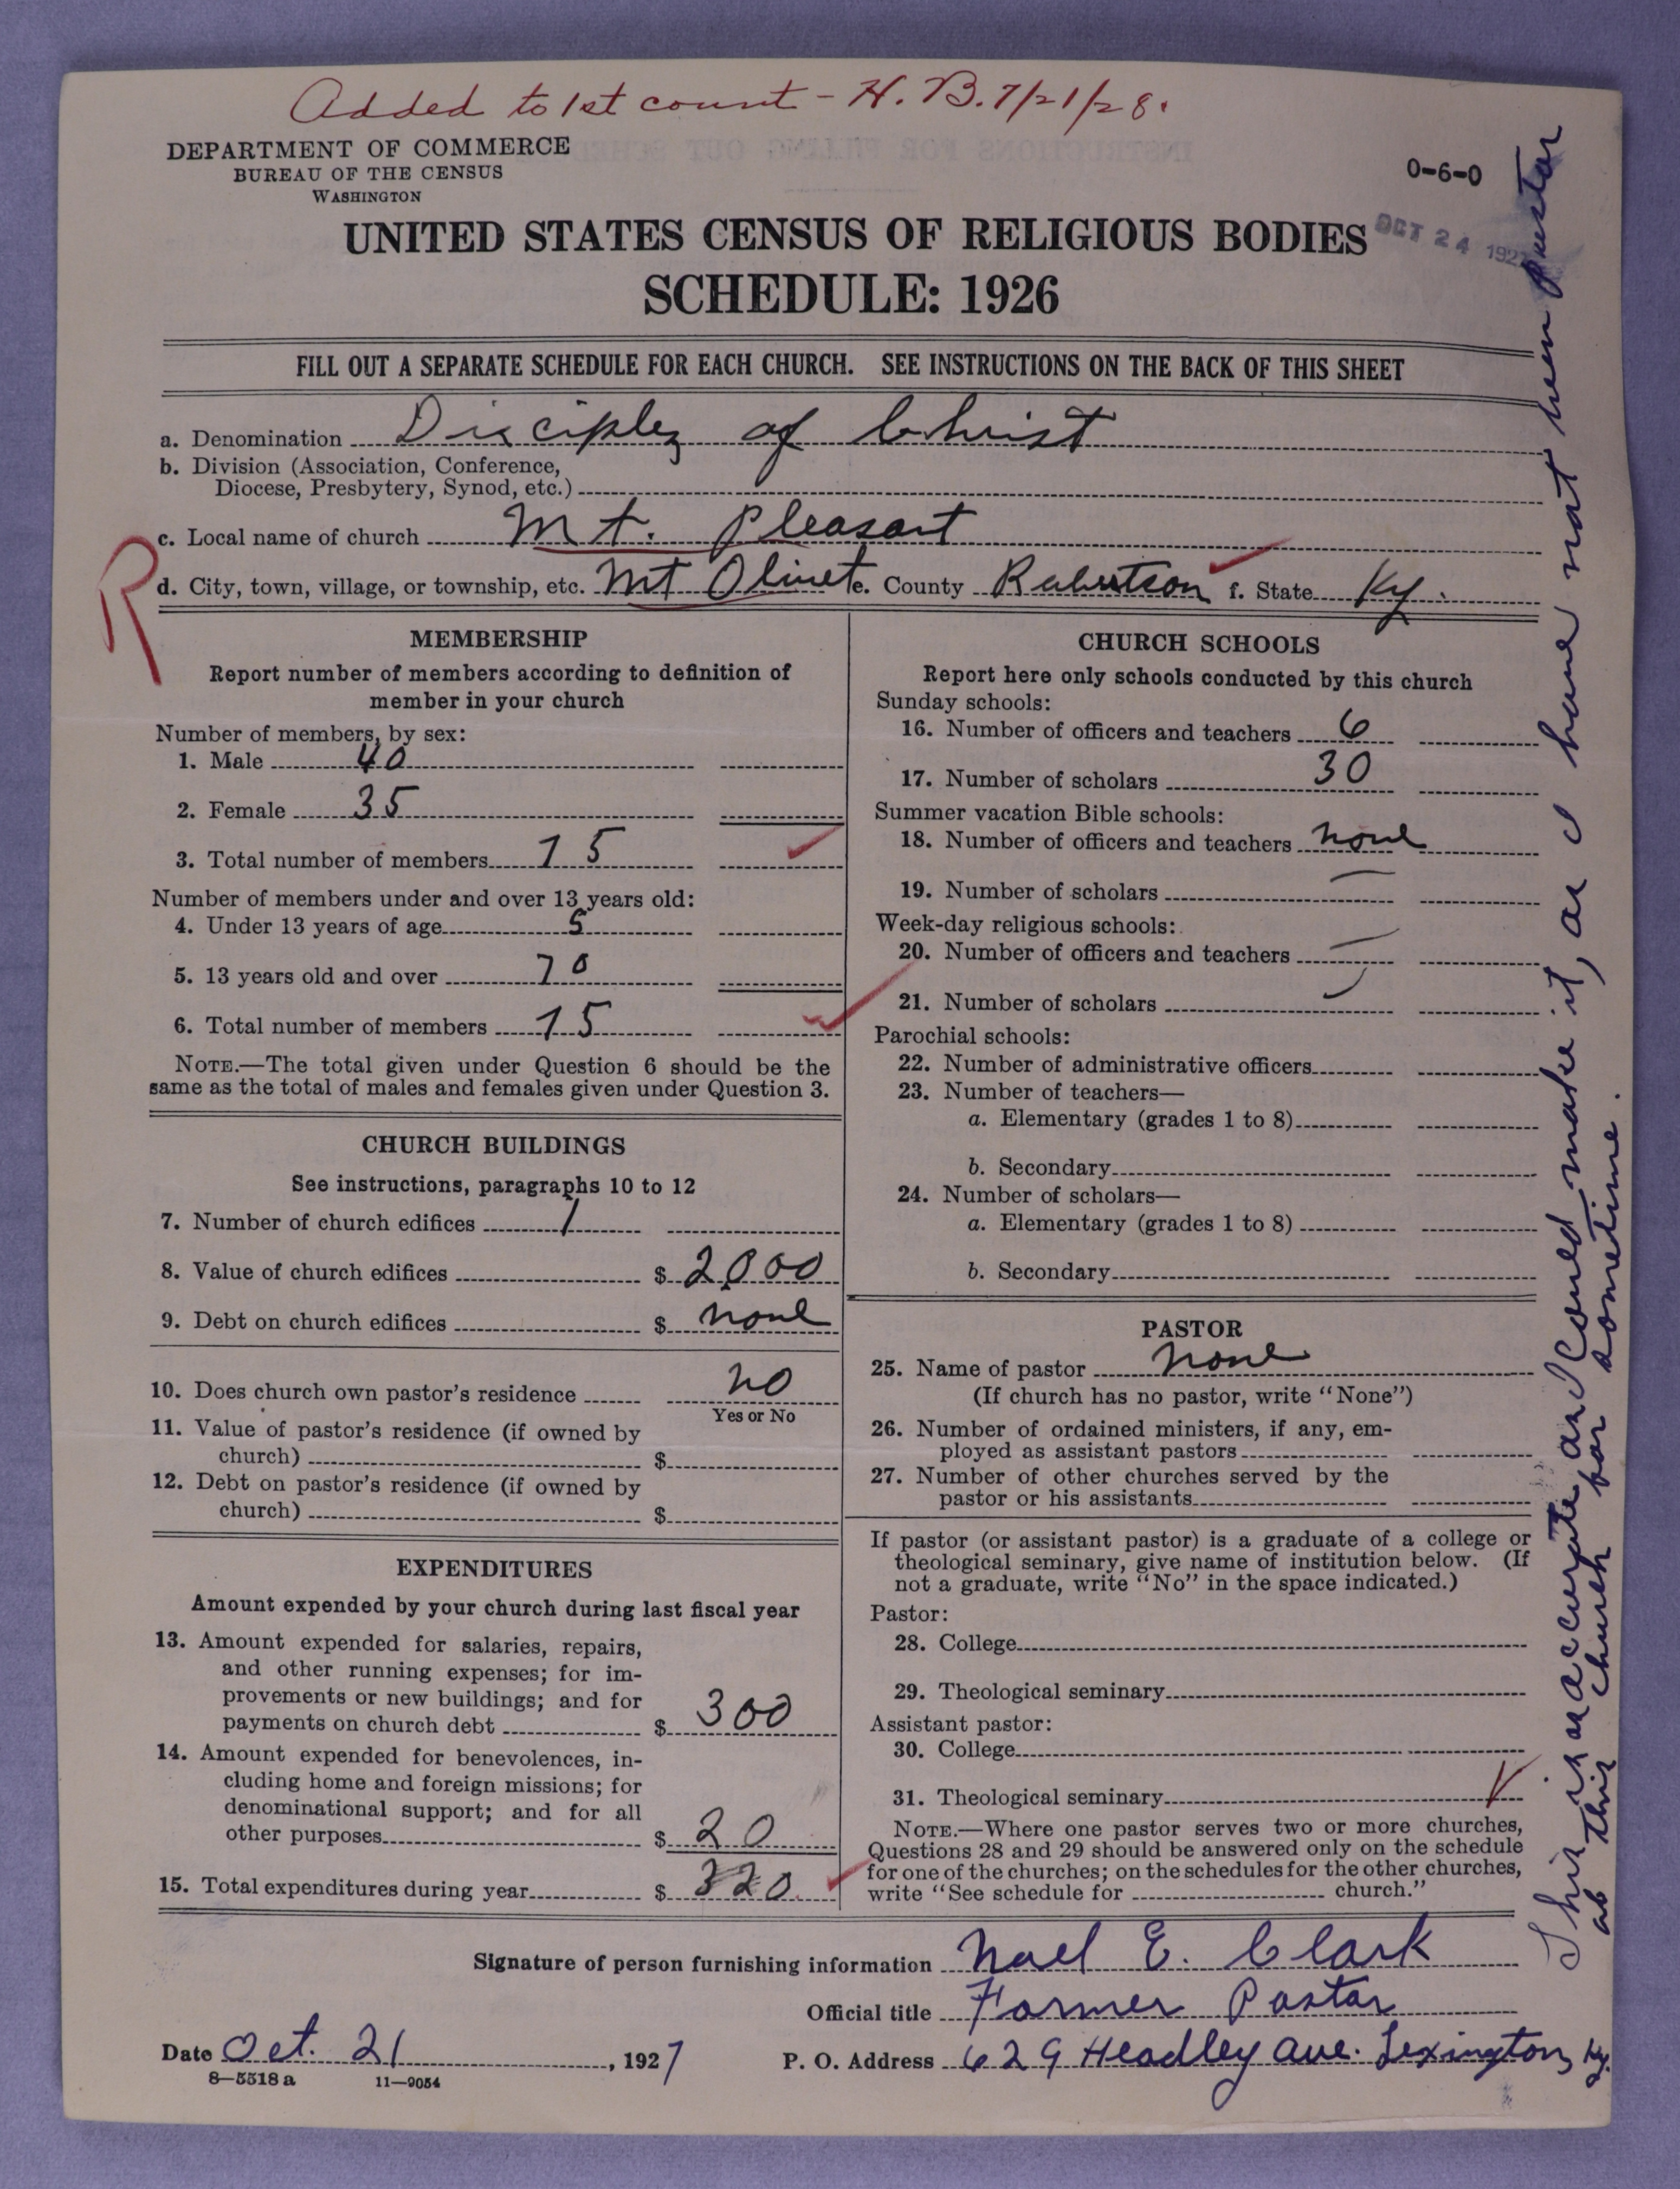 Added to 1st count - H. B. 7/21/28.
DEPARTMENT OF COMMERCE
BUREAU OF THE CENSUS
WASHINGTON
0-6-0
OCT 24 1927
UNITED STATES CENSUS OF RELIGIOUS BODIES
SCHEDULE: 1926
FILL OUT A SEPARATE SCHEDULE FOR EACH CHURCH. SEE INSTRUCTIONS ON THE BACK OF THIS SHEET
a. Denomination Disciples of Christ
b. Division (Association, Conference,
Diocese, Presbytery, Synod, etc.)
c. Local name of church Mt. Pleasant
R
d. City, town, village, or township, etc. Mt Olivet e. County Robertson f. State Ky.
MEMBERSHIP
Report number of members according to definition of
member in your church
Number of members, by sex:
1. Male 40
2. Female 35
3. Total number of members 75
Number of members under and over 13 years old:
4. Under 13 years of age 5
5. 13 years old and over 70
6. Total number of members 75
NOTE.—The total given under Question 6 should be the
same as the total of males and females given under Question 3.
CHURCH BUILDINGS
See instructions, paragraphs 10 to 12
7. Number of church edifices 1
8. Value of church edifices $ 2000
9. Debt on church edifices $ none
10. Does church own pastor's residence no
Yes or No
11. Value of pastor's residence (if owned by
church) $
12. Debt on pastor's residence (if owned by
church) $
EXPENDITURES
Amount expended by your church during last fiscal year
13. Amount expended for salaries, repairs,
and other running expenses; for im-
provements or new buildings; and for
payments on church debt $ 300
14. Amount expended for benevolences, in-
cluding home and foreign missions; for
denominational support; and for all
other purposes $ 20
15. Total expenditures during year $ 320
CHURCH SCHOOLS
Report here only schools conducted by this church
Sunday schools:
16. Number of officers and teachers 6
17. Number of scholars 30
Summer vacation Bible schools:
18. Number of officers and teachers none
19. Number of scholars
Week-day religious schools:
20. Number of officers and teachers
21. Number of scholars
Parochial schools:
22. Number of administrative officers
23. Number of teachers—
a. Elementary (grades 1 to 8)
b. Secondary
24. Number of scholars—
a. Elementary (grades 1 to 8)
b. Secondary
PASTOR
25. Name of pastor none
(If church has no pastor, write "None")
26. Number of ordained ministers, if any, em-
ployed as assistant pastors
27. Number of other churches served by the
pastor or his assistants
If pastor (or assistant pastor) is a graduate of a college or
theological seminary, give name of institution below. (If
not a graduate, write "No" in the space indicated.)
Pastor:
28. College
29. Theological seminary
Assistant pastor:
30. College
31. Theological seminary
NOTE.—Where one pastor serves two or more churches,
Questions 28 and 29 should be answered only on the schedule
for one of the churches; on the schedules for the other churches,
write "See schedule for church."
Signature of person furnishing information Noel E. Clark
Official title Former Pastor
Date Oct. 21, 1927 P. O. Address 629 Headley Ave. Lexington, Ky.
8—5518 a 11—9054
This is as accurate as I could make it, as I have not been pastor
at this church for sometime.